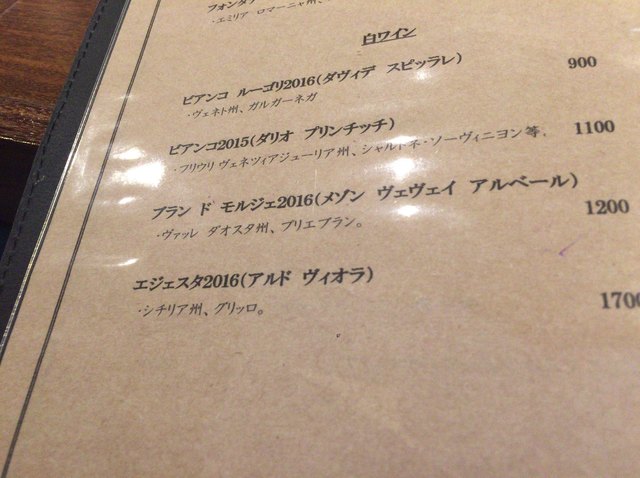 ・エミリア ロマーニャ州、
白ワイン
ビアンコ ルーゴリ2016(ダヴィデ スピッラレ) 900
・ヴェネト州、ガルガーネガ
ビアンコ2015(ダリオ プリンチッチ) 1100
・フリウリ ヴェネツィアジューリア州、シャルドネ・ソーヴィニヨン等。
ブラン ド モルジェ2016(メゾン ヴェヴェイ アルベール) 1200
・ヴァッレ ダオスタ州、プリエブラン。
エジェスタ2016(アルド ヴィオラ) 1700
・シチリア州、グリッロ。